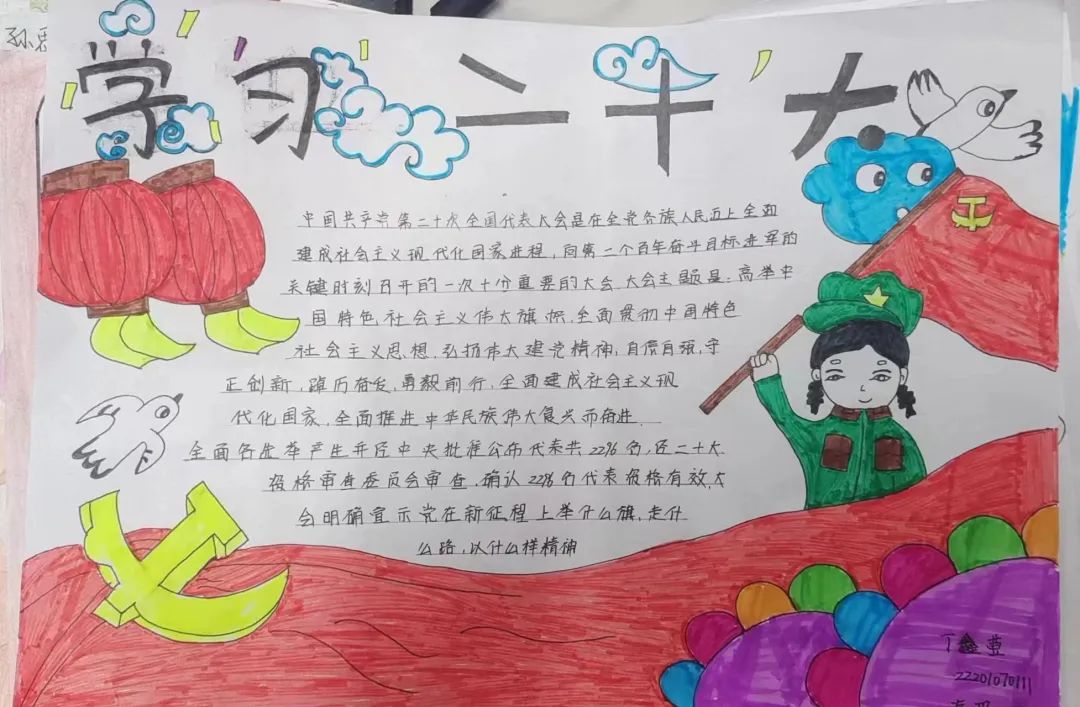 学习二十大
中国共产党第二十次全国代表大会是在全党各族人民迈上全面
建成社会主义现代化国家进程，向第二个百年奋斗目标进军的
关键时刻召开的一次十分重要的大会.大会主题是:高举中
国特色社会主义伟大旗帜.全面贯彻中国特色
社会主义思想.弘扬伟大建党精神,自信自强,守
正创新,踔厉奋发,勇毅前行,全面建成社会主义现
代化国家,全面推进中华民族伟大复兴而奋进.
全面各选举产生并经中央批准公布代表共22%名,还二十大
资格审查委员会审查,确认22%名代表资格有效,大
会明确宣示党在新征程上举什么旗,走什
么路,以什么样精神
丁鑫
22201070111